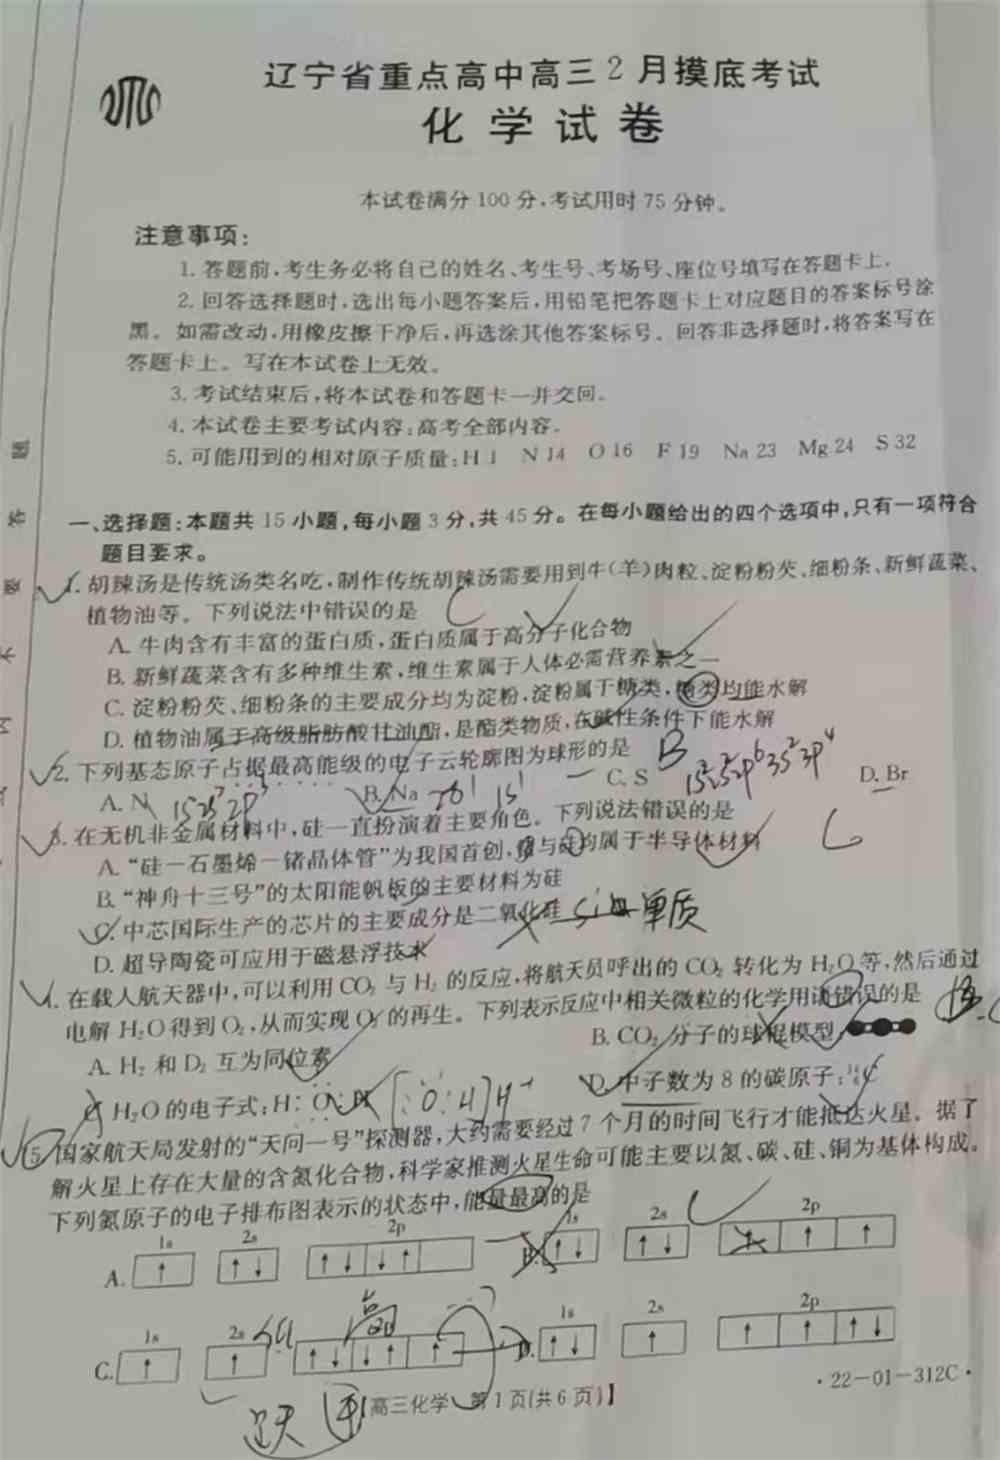 辽宁省重点高中高三2月摸底考试
化学试卷
本试卷满分100分,考试用时75分钟。
注意事项:
1. 答题前,考生务必将自己的姓名、考生号、考场号、座位号填写在答题卡上。
2. 回答选择题时,选出每小题答案后,用铅笔把答题卡上对应题目的答案标号涂
黑。如需改动,用橡皮擦干净后,再选涂其他答案标号。回答非选择题时,将答案写在
答题卡上。写在本试卷上无效。
3. 考试结束后,将本试卷和答题卡一并交回。
4. 本试卷主要考试内容:高考全部内容。
5. 可能用到的相对原子质量:H 1 N 14 O 16 F 19 Na 23 Mg 24 S 32
一、选择题:本题共15小题,每小题3分,共45分。在每小题给出的四个选项中,只有一项符合
题目要求。
1. 胡辣汤是传统汤类名吃,制作传统胡辣汤需要用到牛(羊)肉粒、淀粉粉芡、细粉条、新鲜蔬菜、
植物油等。下列说法中错误的是 C
A. 牛肉含有丰富的蛋白质,蛋白质属于高分子化合物
B. 新鲜蔬菜含有多种维生素,维生素属于人体必需营养素之一
C. 淀粉粉芡、细粉条的主要成分均为淀粉,淀粉属于糖类,糖类均能水解
D. 植物油属于高级脂肪酸甘油酯,是酯类物质,在碱性条件下能水解
2. 下列基态原子占据最高能级的电子云轮廓图为球形的是 B
A. N 1s²2s²2p³ B. Na C. S 1s²2s²2p⁶3s²3p⁴ D. Br
3. 在无机非金属材料中,硅一直扮演着主要角色。下列说法错误的是 C
A. “硅—石墨烯—锗晶体管”为我国首创,锗与硅均属于半导体材料
B. “神舟十三号”的太阳能帆板的主要材料为硅
C. 中芯国际生产的芯片的主要成分是二氧化硅 Si 单质
D. 超导陶瓷可应用于磁悬浮技术
4. 在载人航天器中,可以利用CO₂与H₂的反应,将航天员呼出的CO₂转化为H₂O等,然后通过
电解H₂O得到O₂,从而实现O₂的再生。下列表示反应中相关微粒的化学用语错误的是
A. H₂和D₂互为同位素 B. CO₂分子的球棍模型:
C. H₂O的电子式:H:O:H D. 中子数为8的碳原子:¹⁴₆C
5. 国家航天局发射的“天问一号”探测器,大约需要经过7个月的时间飞行才能抵达火星。据了
解火星上存在大量的含氮化合物,科学家推测火星生命可能主要以氮、碳、硅、铜为基体构成。
下列氮原子的电子排布图表示的状态中,能量最高的是
1s 2s 2p 1s 2s 2p
A. ↑ ↑↓ ↑↓ ↓↑ B. ↑↓ ↑↓ ↑ ↑ ↑
1s 2s 2p 1s 2s 2p
C. ↑ ↑ ↑↓ ↓↑ ↑ D. ↑↓ ↑ ↑ ↑ ↑↓
高
跃迁
高三化学 第1页(共6页)】
·22-01-312C·